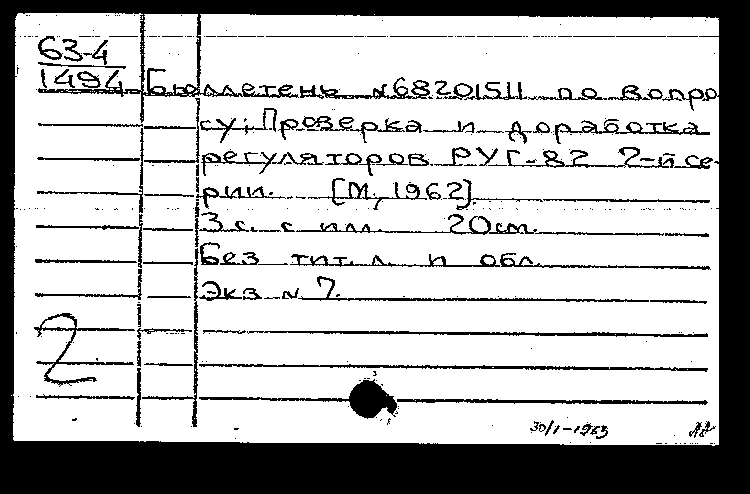 63-4
1494 Бюллетень №68201511 по вопро
су: Проверка и доработка
регуляторов РУГ-82 2-й се-
рии. [М., 1962].
3 с. с илл. 20 см.
Без тит. л. и обл.
Экз № 7.
2
30/I-1963